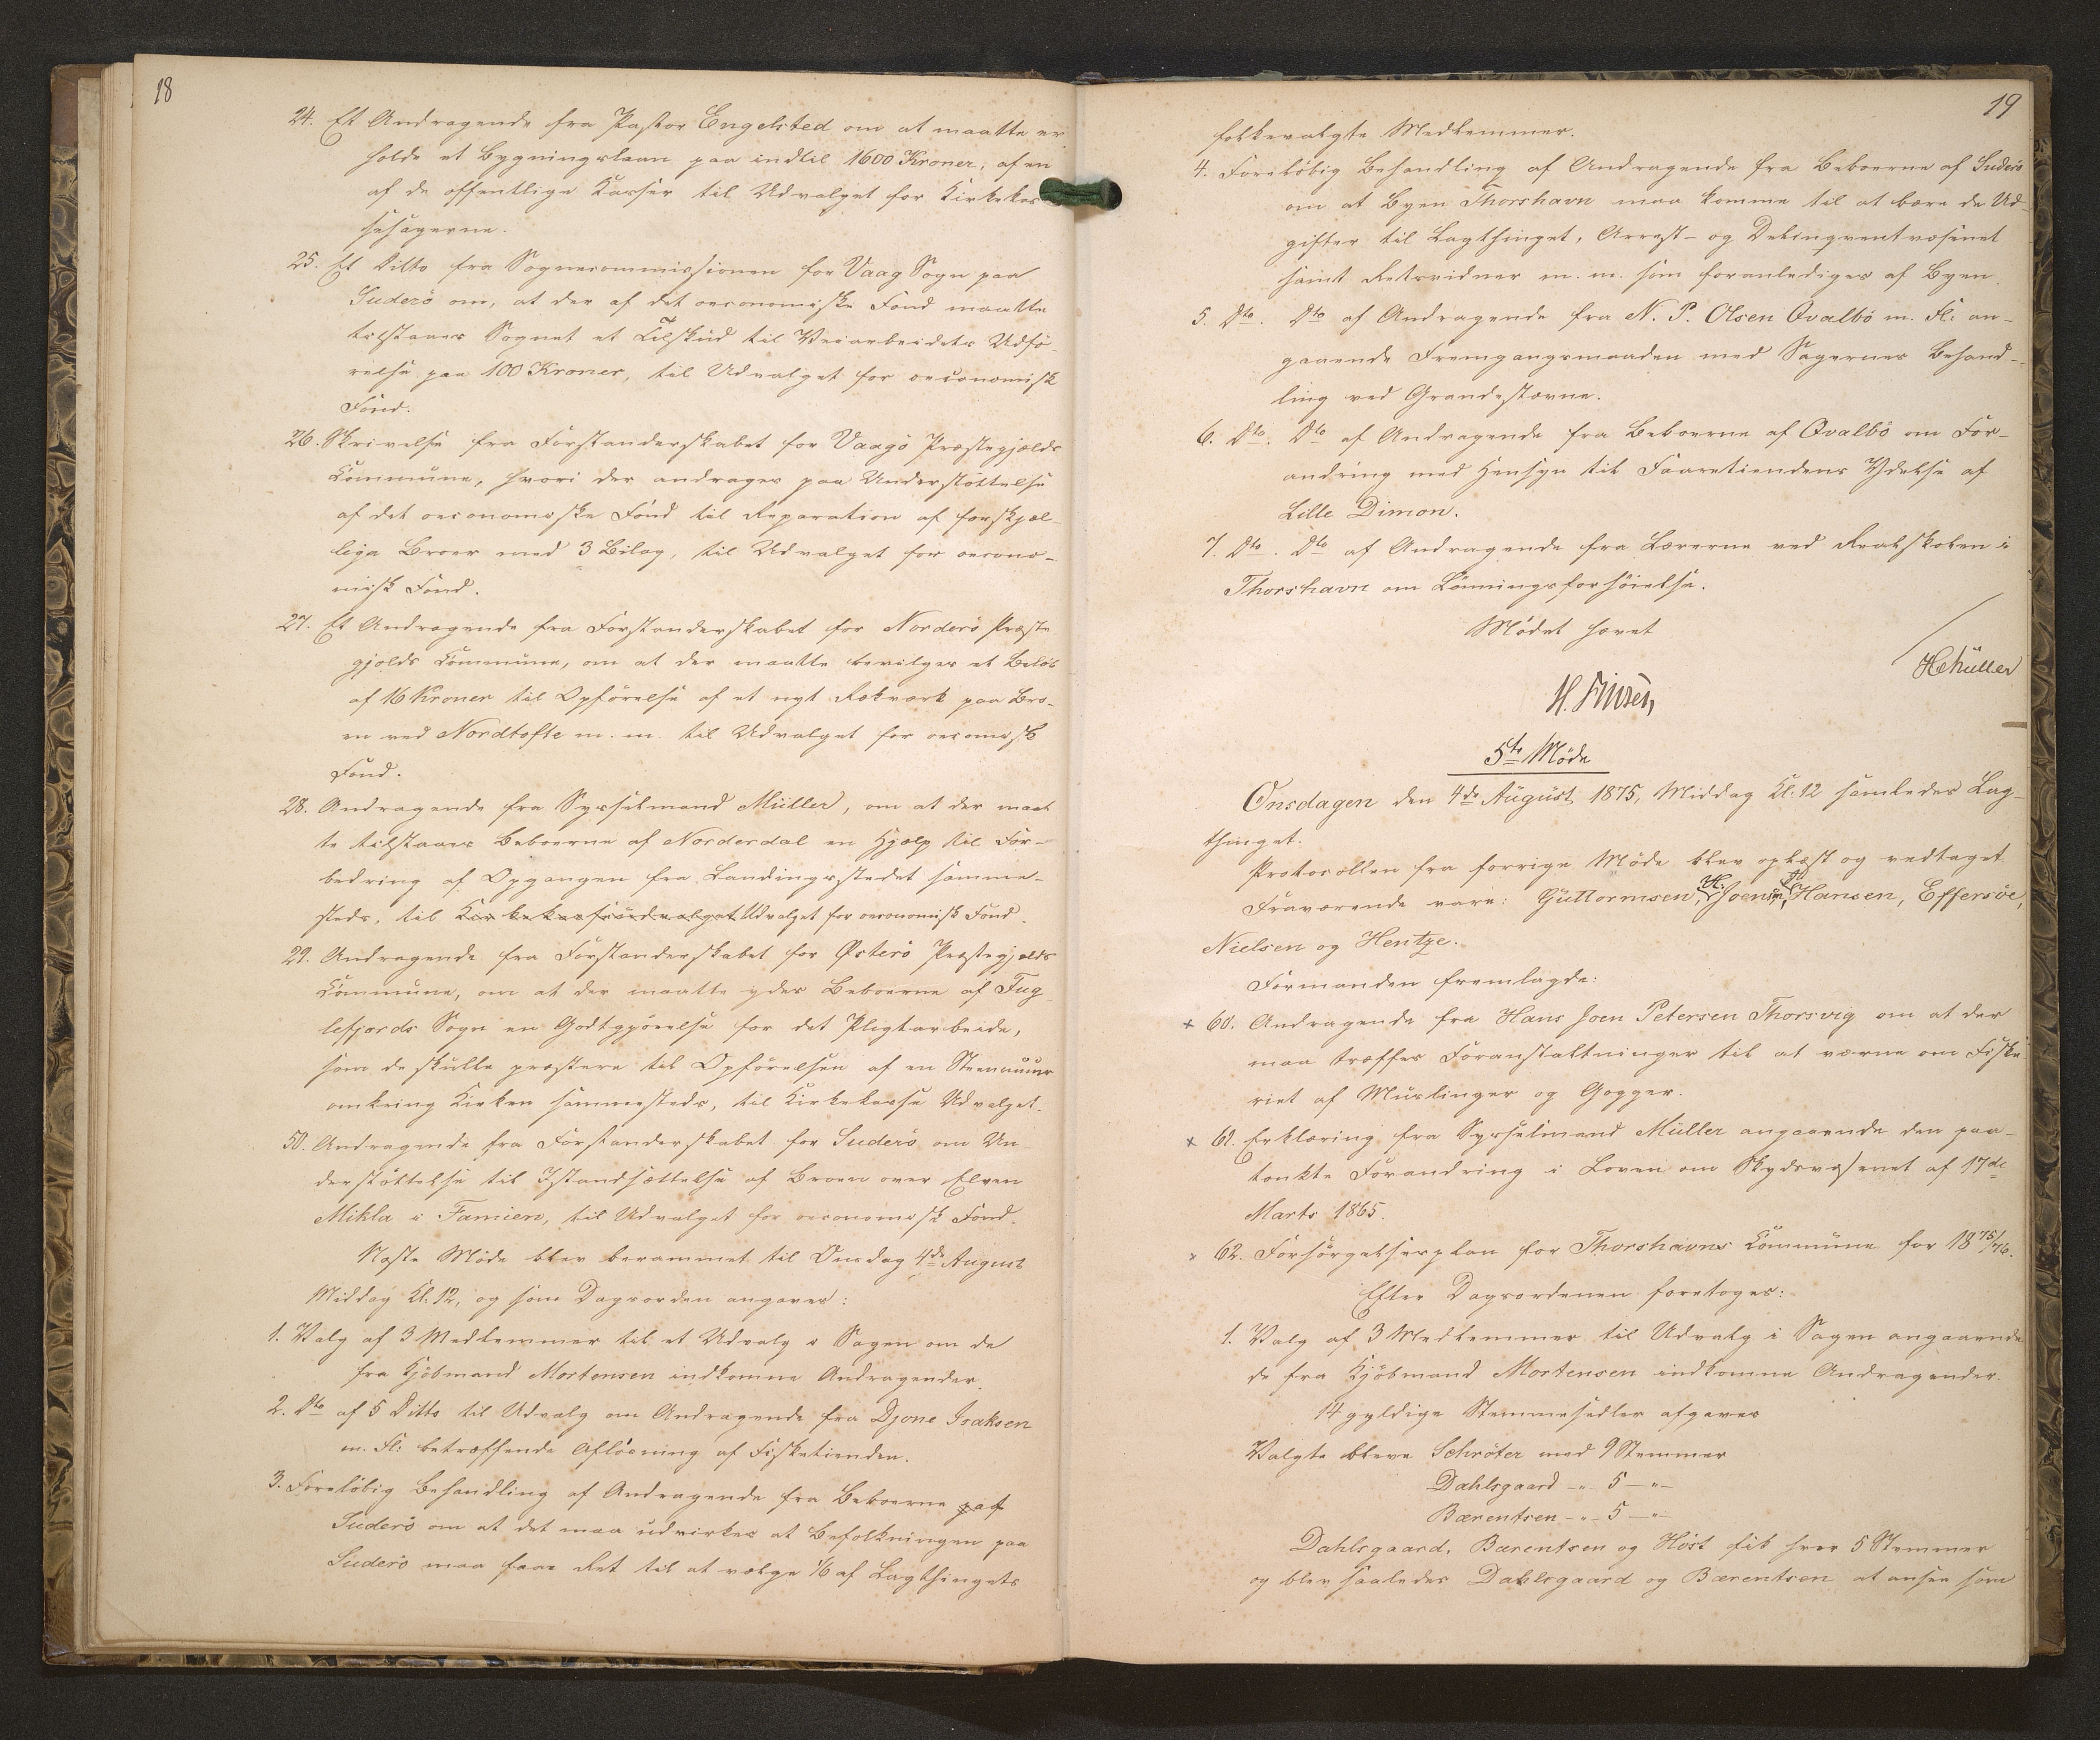 18
24. Et Andragende fra Pastor Engelsted om at maatte er
holde et Bygningslaan paa indtil 1600 Kroner, af en
af de offentlige Kasser til Udvalget for Kirkekas
sesagerne.
25. Et ditto fra Sognecommissionen for Vaag Sogn paa
Suderö om, at der af det oeconomiske Fond maatte
tilstaaes Sognet et Tilskud til Veiarbeidets Udfö-
relse paa 100 Kroner, til Udvalget for oeconomisk
Fond.
26. Skrivelse fra Forstanderskabet for Vaagö Præstegjælds
Commune, hvori der andrages paa Understöttelse
af det oeconomiske Fond til Reparation af forskjæl-
lige Broer med 3 Bilag, til Udvalget for oecono-
misk Fond.
27. Et Andragende fra Forstanderskabet for Norderö Præste
gjælds Commune, om at der maatte bevilges et Belöb
af 16 Kroner til Opförelse af et nyt Rækværk paa Bro-
en ved Nordtofte m. m. til Udvalget for oeconomisk
Fond.
28. Andragende fra Sysselmand Müller, om at der maat
te tilstaaes Beboerne af Norderdal en Hjælp til For-
bedring af Opgangen fra Landingsstedet samme-
steds, til Kirkekasseudvalget Udvalget for oeconomisk Fond.
29. Andragende fra Forstanderskabet for Østerö Præstegjælds
Commune, om at der maatte ydes Beboerne af Fug
lefjords Sogn en Godtgjörelse for det Pligtarbeide,
som de skulle præstere til Opförelsen af en Steenmuur
omkring Kirken sammesteds, til Kirkekasse Udvalget.
50. Andragende fra Forstanderskabet for Suderö om Un
derstöttelse til Istandsættelse af Broen over Elven
Mikla i Famien, til Udvalget for oeconomisk Fond.
Næste Möde blev berammet til Onsdag 4de August
Middag Kl. 12, og som Dagsorden angaves:
1. Valg af 3 Medlemmer til et Udvalg i Sagen om de
fra Kjöbmand Mortensen indkomne Andragender.
2. Dto af 5 Ditto til Udvalg om Andragende fra Djone Isaksen
m. Fl. betræffende Aflösning af Fisketienden.
3. Forelöbig Behandling af Andragende fra Beboerne paa af
Suderö om at det maa udvirkes at Befolkningen paa
Suderö maa faae Ret til at vælge 1/6 af Lagthingets
19
folkevalgte Medlemmer.
4. Forelöbig Behandling af Andragende fra Beboerne af Suderö
om at Byen Thorshavn maa komme til at bære de Ud-
gifter til Lagthinget, Arrest- og Delingventvæsenet
samt Retsvidner m. m. som foranlediges af Byen.
5. Dto. Dto af Andragende fra N. P. Olsen Qvalbö m. Fl. an-
gaaende Fremgangsmaaden med Sagernes Behand-
ling ved Grandestævne.
6. Dto. Dto af Andragende fra Beboerne af Qvalbö om For-
andring med Hensyn til Faaretiendens Ydelse af
Lille Dimon.
7. Dto. Dto af Andragende fra Lærerne ved Realskolen i
Thorshavn om Lönningsforhöielse.
Mödet hævet
HMüller
H. Finsen,
5te Möde
Onsdagen den 4de August 1875, Middag Kl. 12 samledes Lag-
thinget.
Protocollen fra forrige Möde blev oplæst og vedtaget.
Fraværende vare: Guttormsen, H. Joensen, Hansen, Effersöe,
Nielsen og Hentze.
Formanden fremlagde:
x 60. Andragende fra Hans Joen Petersen Thorsvig om at der
maa træffes Foranstaltninger til at værne om Fiske
riet af Muslinger og Gogger.
x 61. Erklæring fra Sysselmand Müller angaaende den paa-
tænkte Forandring i Loven om Skydsvæsenet af 17de
Marts 1865.
x 62. Forsörgelsesplan for Thorshavns Commune for 1875/76.
Efter Dagsordenen foretoges:
1. Valg af 3 Medlemmer til Udvalg i Sagen angaaende
de fra Kjöbmand Mortensen indkomne Andragender.
14 gyldige Stemmesedler afgaves
Valgte bleve Schröter med 9 Stemmer
Dahlsgaard - " - 5 - " -
Bærentsen - " - 5 - " -
Dahlsgaard, Bærentsen og Höst fik hver 5 Stemmer
og blev saaledes Dahlsgaard og Bærentsen at ansee som